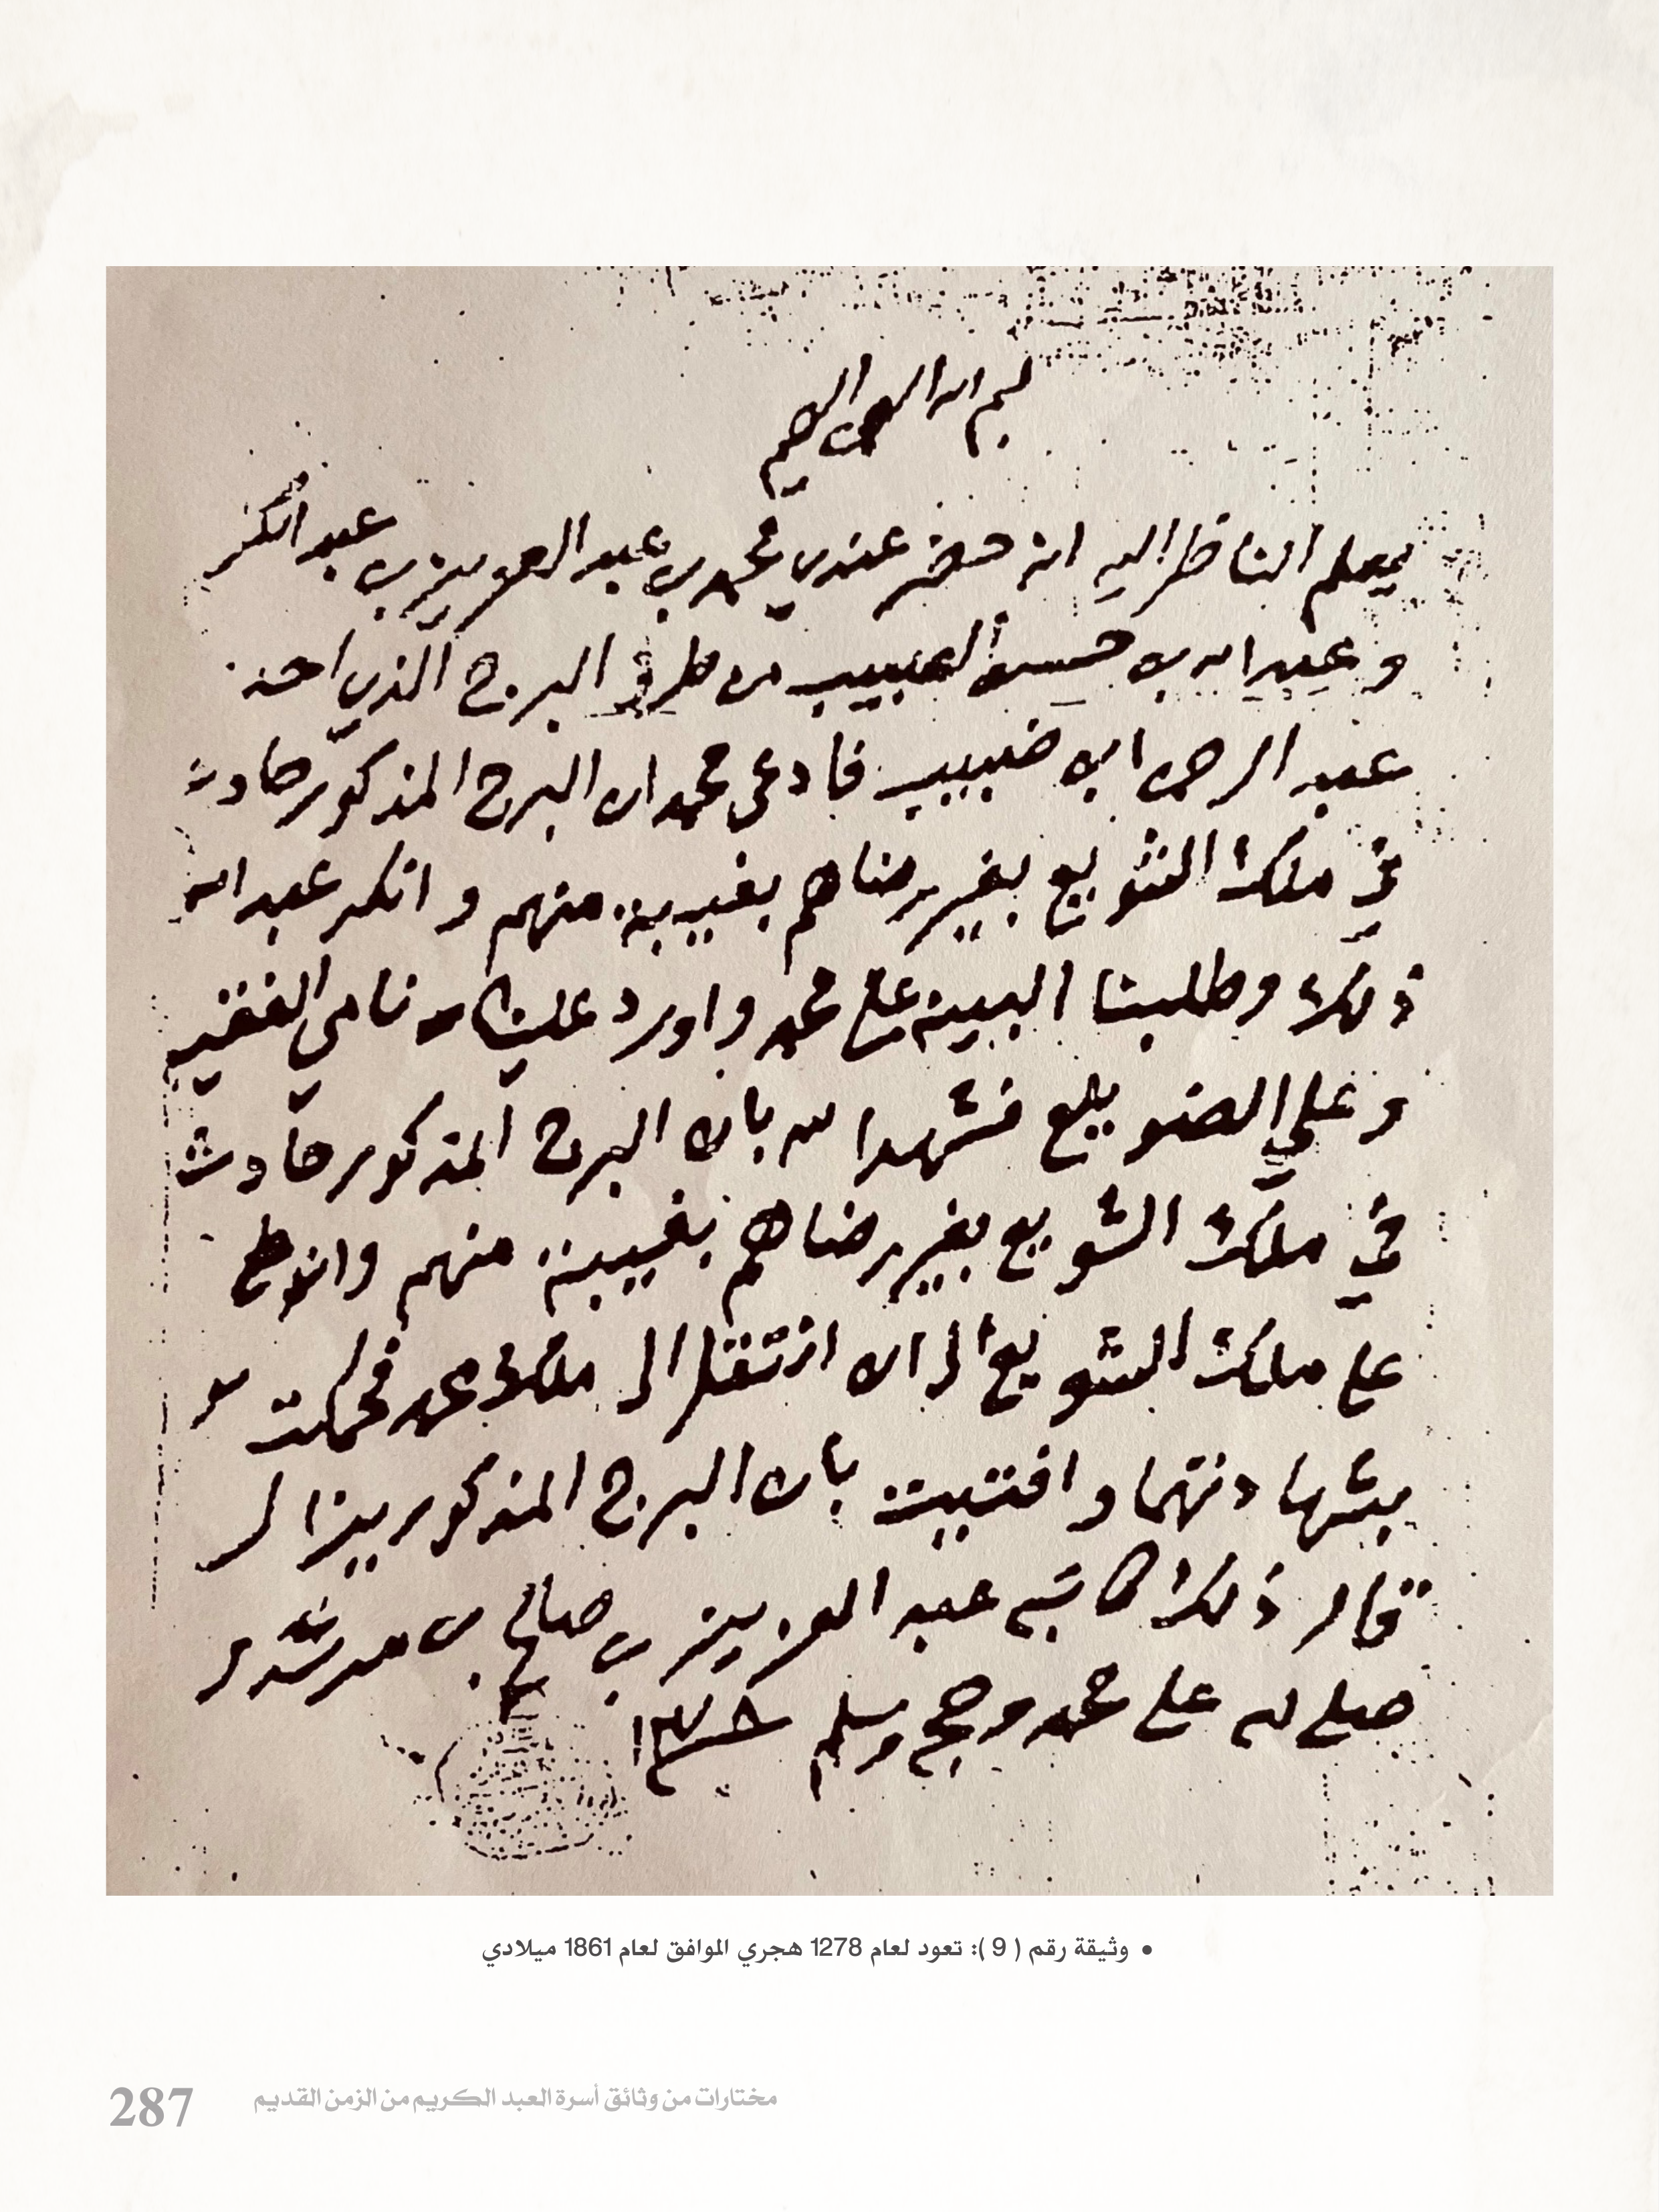 بسم الله الرحمن الرحيم
يعلم الناظر اليه انه حضر عندي محمد بن عبد العزيز بن عبد الكريم
وعبد الله بن حسين من طرف البرج الذي احدث
عبد الرحمن ابن ضبيب فادعى محمد ان البرج المذكور حادث
في ملك الشويع بغير رضاهم بغيبية منهم وانكر عبد الله
ذلك وطلبنا البينه على محمد واورد علينا نامي الفقير
وعلي الصويلع فشهدا لله بان البرج المذكور حادث
في ملك الشويع بغير رضاهم بغيبية منهم
على ملك الشويع الى ان انتقل الى ملك محمد فحكمت
بشهادتهما وافتيت بان البرج المذكور يزال
قال ذلك كاتبه عبد العزيز بن صالح بن مرشد و
صلى الله على محمد وصحبه وسلم ١٢٧٨
• وثيقة رقم ( 9 ): تعود لعام 1278 هجري الموافق لعام 1861 ميلادي
مختارات من وثائق أسرة العبد الكريم من الزمن القديم
287